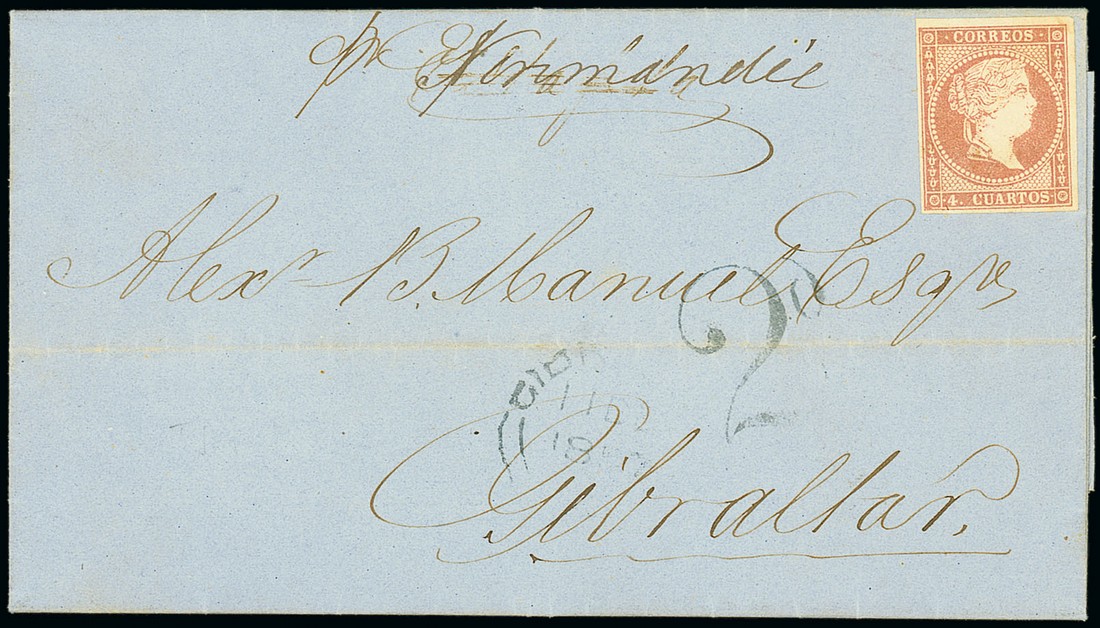 pr Normandie
CORREOS
4. CUARTOS
Alexr B. Manuel Esqre
2
Gibraltar.